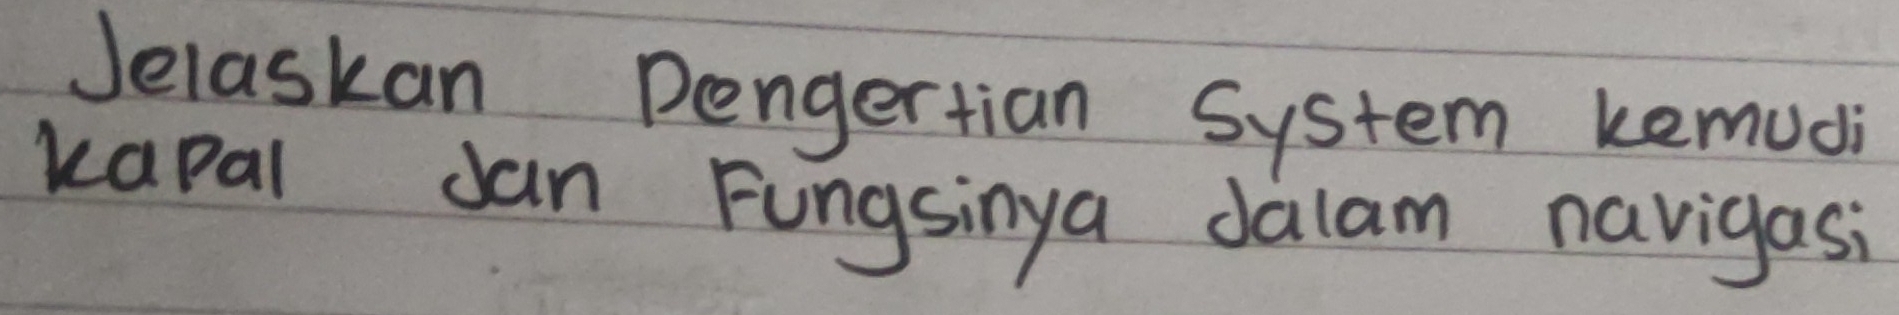 Jelaskan Pengertian System kemudi
kapal dan Fungsinya dalam navigasi